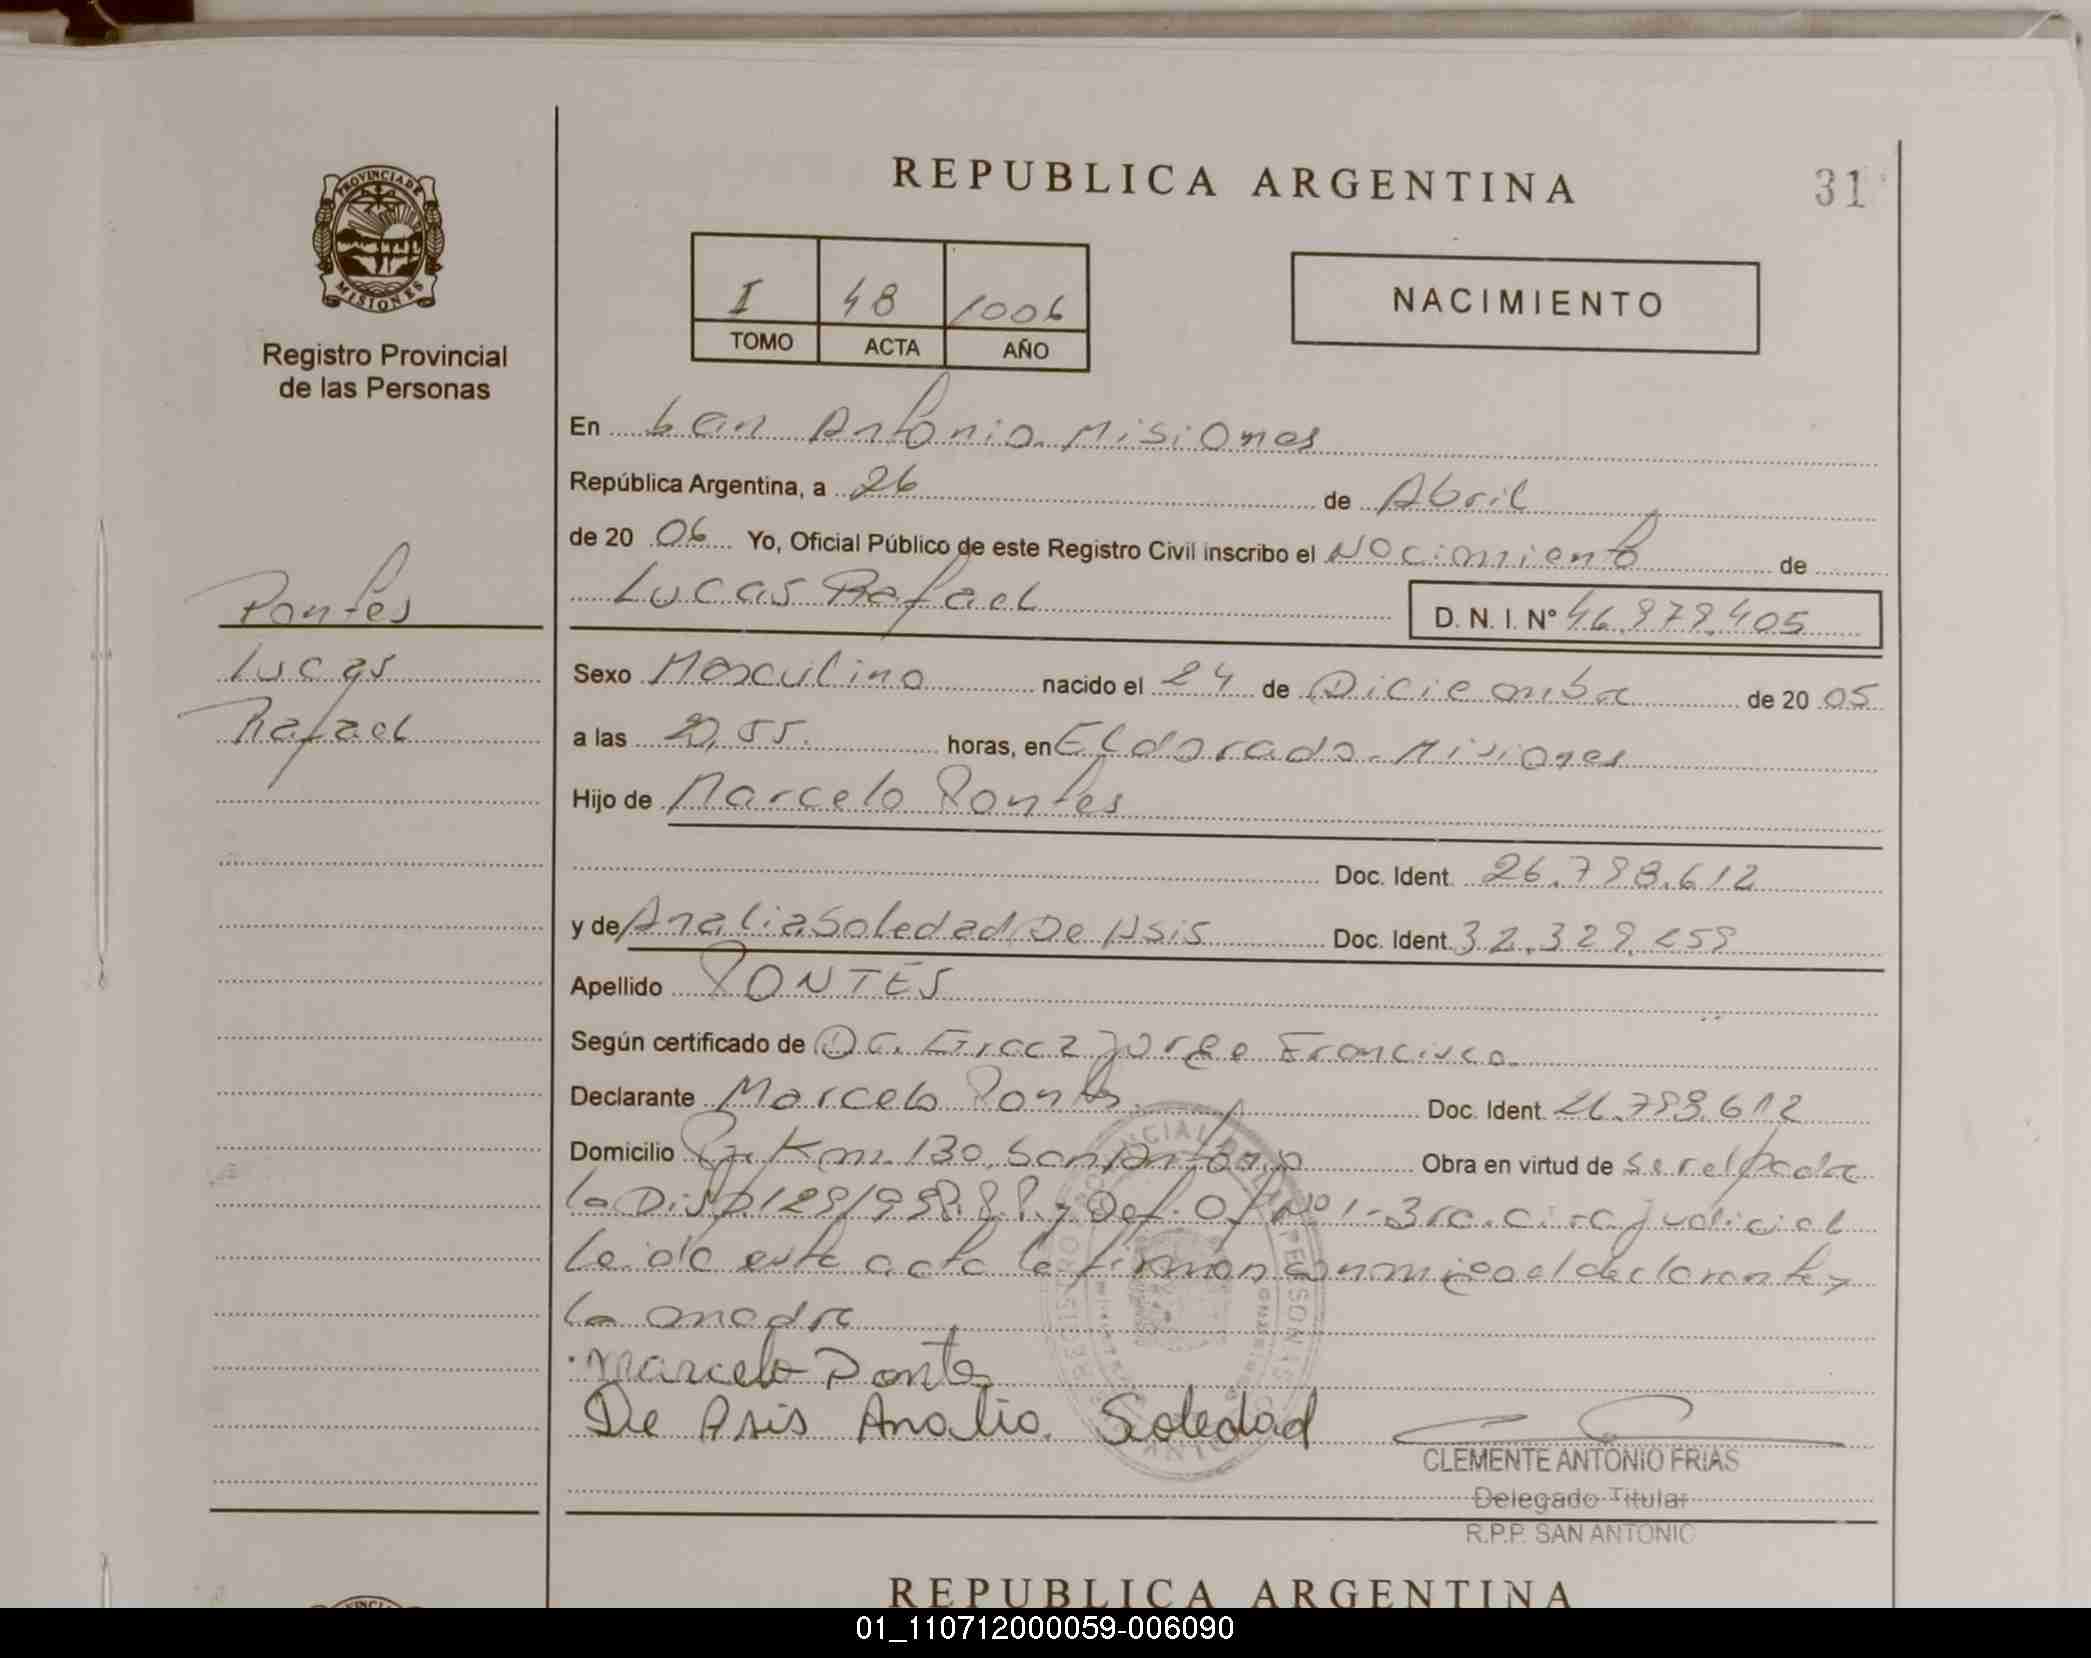 PROVINCIA DE
MISIONES
Registro Provincial
de las Personas
Pontes
Lucas
Rafael
REPUBLICA ARGENTINA
31
I 48 2006
TOMO ACTA AÑO
NACIMIENTO
En San Antonio Misiones
República Argentina, a 26 de Abril
de 20 06 Yo, Oficial Público de este Registro Civil inscribo el Nacimiento de
Lucas Rafael D. N. I. Nº 46.979.405
Sexo Masculino nacido el 24 de Diciembre de 20 05
a las 20,55. horas, en Eldorado - Misiones
Hijo de Marcelo Pontes
Doc. Ident. 26.798.612
y de Analia Soledad De Asis Doc. Ident. 32.329.259
Apellido PONTES
Según certificado de Dr. Jorge Francisco
Declarante Marcelo Pontes Doc. Ident. 26.798.612
Domicilio Km. 130 San Antonio Obra en virtud de ser el padre
la Disp. 129/99 R.P.P. y Def. Of Nº 1 - 3ra. circ judicial
Leida esta acta la firman conmigo el declarante y
la madre
Marcelo Pontes
De Asis Analia Soledad
CLEMENTE ANTONIO FRIAS
Delegado Titular
R.P.P. SAN ANTONIO
REPUBLICA ARGENTINA
01_110712000059-006090